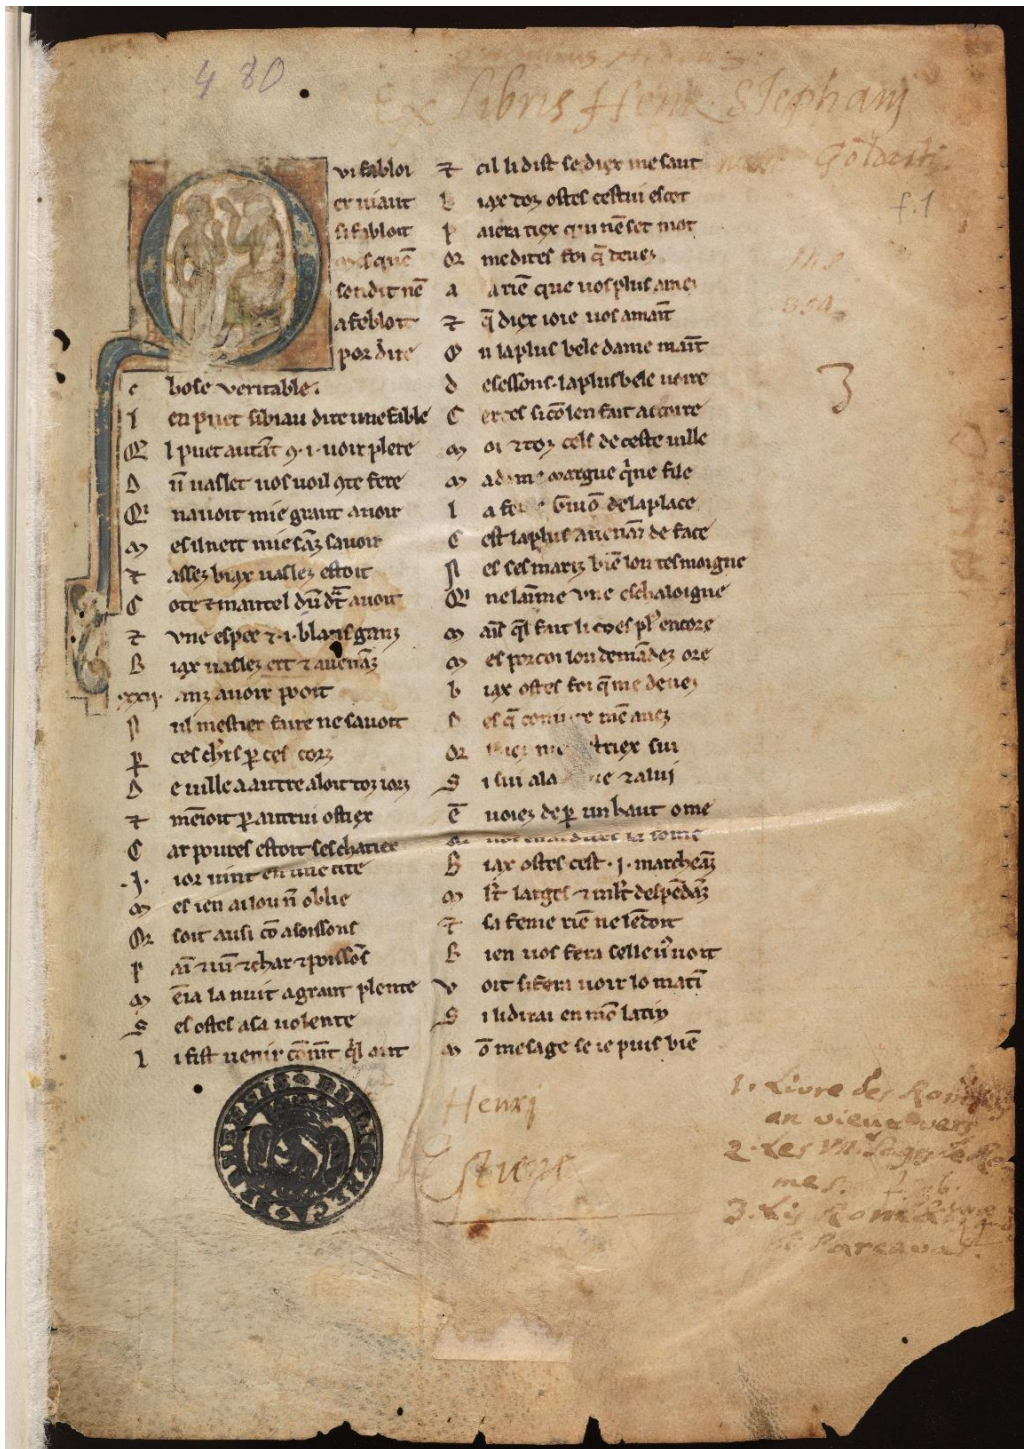 4 80
Ex libris Henr Stephani
f.1
3
vi fabloi
er uiaut
si fabloit
mes quē
son dit nē
afebloit
por dire
c hose veritable.
l en puet si biau dire une fable
Q l puet autāt ꝯ .i. uoir plere
D ū uaslet uos uoil ꝯte fere
Qⁱ nauoit mie grant auoir
m es il nert mie sāz sauoir
⁊ assez biax uaslez estoit
C ote ⁊ mantel dū dᵃp auoit
⁊ vne espee ⁊ .i. blans ganz
B iax uaslez ert ⁊ auenāz
.xxii. anz auoir pooit
N ul mestier faire ne sauoit
ꝑ ces chr̄s ꝑ ces corz
D e uille a autre aloit toz iorz
⁊ mēioit ꝑ autrui ostiex
C ar poures estoit ses chatiex
.I. ior uint en une cite
m es ien ai lou n̄ oblie
Or soit ausi cō a soissons
P aī ⁊ uī ⁊ char ⁊ poissōs
m ēia la nuit a grant plente
S es ostes a sa uolente
L i fist uenir cōmt q̄l ont
⁊ cil li dist se diex me saut
B iax doz ostes cestui escot
P aiera tiex qui nē set mot
Or me dites foi q̄ deuez
a a riē que uos plus amez
⁊ q̄ diex ioie uos amaīt
O u la plus bele dame maīt
d e sessons . la plus bele uoire
C ertes si cō len fait acroire
m oi ⁊ toz cels de ceste uille
m adame margue q̄ ne file
l a fe guiō de la place
C est la plus auenāz de face
N es ses mariz biē lou tesmoigne
Qⁱ ne laīme vne eschaloigne
m aīs q̄l fait li coes pl' encore
m es por coi lou demādez ore
b iax ostes foi q̄ me deuez
D es q̄ mē auez
Or tiex sui
S i lui ala ⁊ a lui
ē uoiez de ꝑ un haut ome
B iax ostes cest .i. marcheāz
m lt̄ larges ⁊ mlt̄ despēdāz
⁊ sa feme riē ne lē doit
B ien uos fera selle uos uoit
v oit si fera uoir lo matī
S i li dirai en mō latin
m ō mesage se ie puis biē
Henri
Estiene
1. Livre des Rom
en vieux vers
2. Les VII. Sages de Ro
mes.
3. Li Roma
de Parceval.